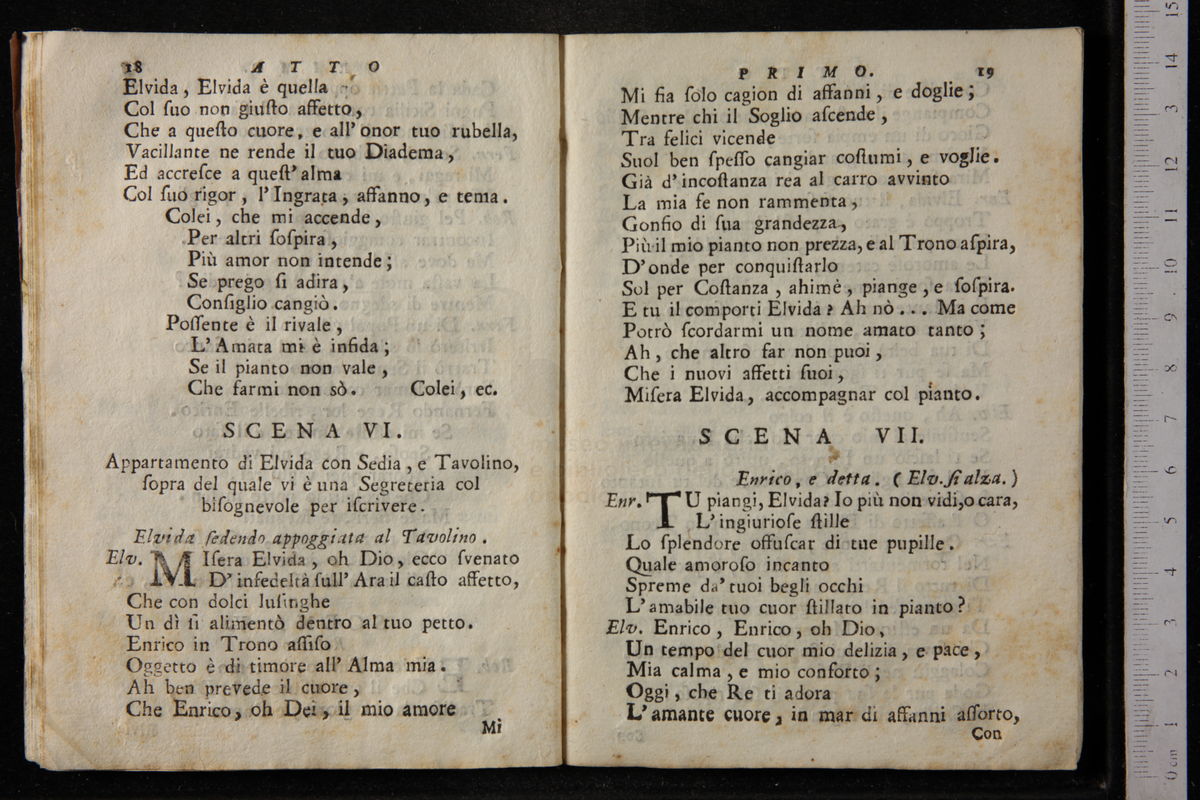 18 ATTO
Elvida, Elvida è quella
Col ſuo non giuſto affetto,
Che a queſto cuore, e all' onor tuo rubella,
Vacillante ne rende il tuo Diadema,
Ed accreſce a queſt' alma
Col ſuo rigor, l' Ingrata, affanno, e tema.
Colei, che mi accende,
Per altri ſoſpira,
Più amor non intende;
Se prego ſi adira,
Conſiglio cangiò.
Poſſente è il rivale,
L' Amata mi è infida;
Se il pianto non vale,
Che farmi non sò. Colei, ec.
SCENA VI.
Appartamento di Elvida con Sedia, e Tavolino,
ſopra del quale vi è una Segreteria col
biſognevole per iſcrivere.
Elvida ſedendo appoggiata al Tavolino.
Elv. MIſera Elvida, oh Dio, ecco ſvenato
D' infedeltà ſull' Ara il caſto affetto,
Che con dolci luſinghe
Un dì ſi alimentò dentro al tuo petto.
Enrico in Trono aſſiſo
Oggetto è di timore all' Alma mia.
Ah ben prevede il cuore,
Che Enrico, oh Dei, il mio amore
Mi
PRIMO. 19
Mi fia ſolo cagion di affanni, e doglie;
Mentre chi il Soglio aſcende,
Tra felici vicende
Suol ben ſpeſſo cangiar coſtumi, e voglie.
Già d' incoſtanza rea al carro avvinto
La mia fe non rammenta,
Gonfio di ſua grandezza,
Più il mio pianto non prezza, e al Trono aſpira,
D' onde per conquiſtarlo
Sol per Coſtanza, ahimè, piange, e ſoſpira.
E tu il comporti Elvida? Ah nò... Ma come
Potrò ſcordarmi un nome amato tanto;
Ah, che altro far non puoi,
Che i nuovi affetti ſuoi,
Miſera Elvida, accompagnar col pianto.
SCENA VII.
Enrico, e detta. (Elv. ſi alza.)
Enr. TU piangi, Elvida? Io più non vidi, o cara,
L' ingiurioſe ſtille
Lo ſplendore offuſcar di tue pupille.
Quale amoroſo incanto
Spreme da' tuoi begli occhi
L' amabile tuo cuor ſtillato in pianto?
Elv. Enrico, Enrico, oh Dio,
Un tempo del cuor mio delizia, e pace,
Mia calma, e mio conforto;
Oggi, che Re ti adora
L' amante cuore, in mar di affanni aſſorto,
Con
0 cm 1 2 3 4 5 6 7 8 9 10 11 12 13 14 15